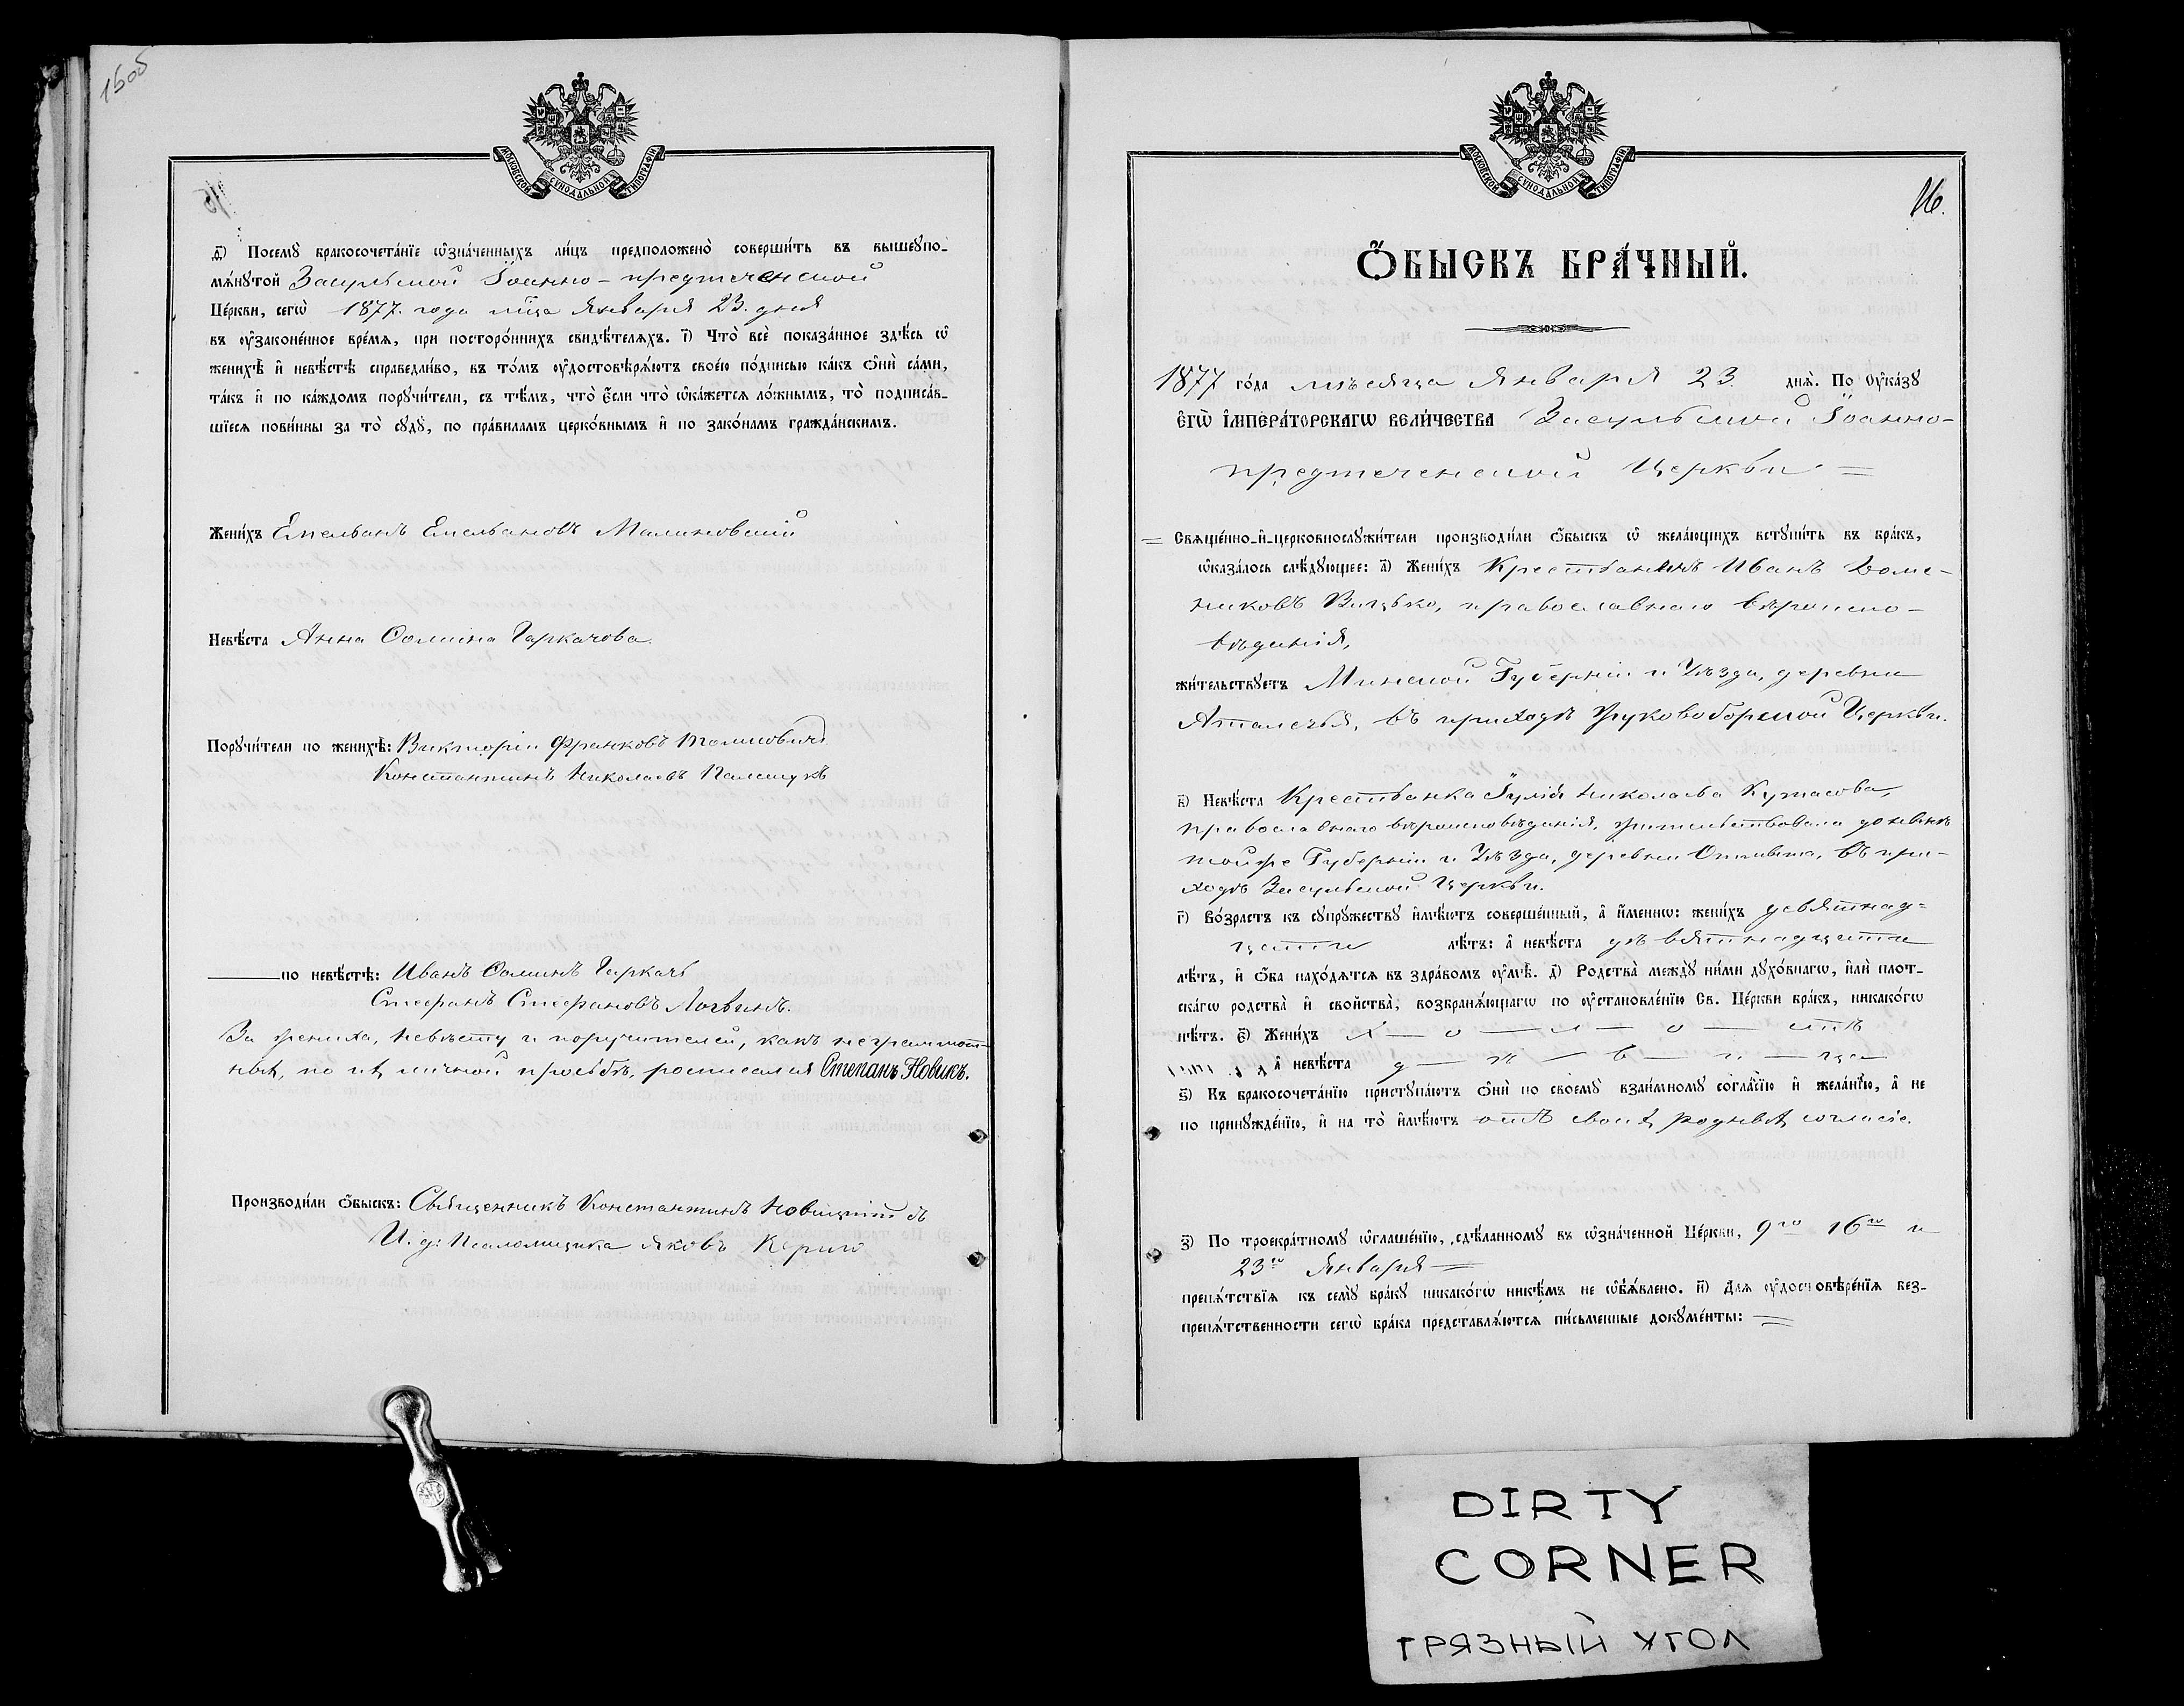 1605
МОСКОВСКОЙ СѴНОДАЛЬНОЙ ТИПОГРАФІИ
15
д҃) Посемꙋ̀ бракосочета́нїе ѡ҆зна́ченныхъ ли́цъ предположено̀ соверши́ть въ вышеꙋпо-
мѧ́нꙋтой Засульской Іоанно-предтеченской
Це́ркви, сегѡ̀ 1877. года м̃ца Января 23. дня
въ ᲂу҆законе́нное вре́мѧ, при посторо́ннихъ свидѣ́телѧхъ. і҃) Что̀ всѐ показа́нное здѣ́сь ѡ҆
женихѣ̀ и҆ невѣ́стѣ справедли́во, въ то́мъ ᲂу҆достовѣрѧ́ютъ свое́ю по́дписью ка́къ ѻ҆нѝ са́ми,
та́къ и҆ по ка́ждомъ порꙋчи́тели, съ тѣ́мъ, что̀ є҆́сли что̀ ѡ҆ка́жетсѧ ло́жнымъ, то̀ подписа́в-
шїесѧ пови́нны за то̀ сꙋдꙋ̀, по пра́виламъ церко́внымъ и҆ по зако́намъ гражда́нскимъ.
Жени́хъ Емельянъ Емельяновъ Малиновскій
Невѣ́ста Анна Сомина Гаркачова.
Порꙋчи́тели по женихѣ̀: Викторій Франковъ Толиковичъ
Константинъ Николаевъ Палещукъ
по невѣ́стѣ: Иванъ Соминъ Гаркачъ
Стефанъ Стефановъ Логвинъ.
За жениха, невѣсту и поручителей, какъ неграмот-
ныхъ, по ихъ личной просьбѣ, росписался Степанъ Новикъ.
Производи́ли ѻ҆́быскъ: Священникъ Константинъ Новицкій
И. д: Псаломщика Яковъ
МОСКОВСКОЙ СѴНОДАЛЬНОЙ ТИПОГРАФІИ
16.
Ѻ҆́БЫСКЪ БРА́ЧНЫЙ.
1877 го́да мѣсяца Января 23. днѧ̀. По ᲂу҆ка́зꙋ
Є҆ГѠ̀ І҆МПЕРА́ТОРСКАГѠ ВЕЛИ́ЧЕСТВА Засульской Іоанно-
предтеченской Церкви =
= Свѧще́нно-и҆-церковнослꙋжи́тели производи́ли ѻ҆́быскъ ѡ҆ жела́ющихъ встꙋпи́ть въ бра́къ,
ѡ҆каза́лось слѣ́дꙋющее: а҃) Жени́хъ Крестьянинъ Иванъ Доме-
никовъ Вицько, православнаго вѣроиспо-
вѣданія,
жи́тельствꙋетъ Минской Губерніи и Уѣзда, деревни
Аталезья, въ приходѣ Жуковоборской Церкви.
в҃) Невѣ́ста Крестьянка Іулія Николаева Кутасова,
православнаго вѣроисповѣданія, жительствовала донынѣ
той же Губерніи и Уѣзда, деревни въ при-
ходѣ Засульской Церкви.
г҃) Во́зрастъ къ сꙋпрꙋ́жествꙋ и҆мѣ́ютъ соверше́нный, а҆ и҆́меннѡ: жени́хъ девятнад-
цати лѣ́тъ: а҆ невѣ́ста девятнадцати
лѣ́тъ, и҆ ѻ҆́ба нахо́дѧтсѧ въ здра́вомъ ᲂу҆мѣ̀. д҃) Родства̀ междꙋ̀ ни́ми дꙋхо́внагѡ, и҆лѝ плот-
ска́гѡ родства̀ и҆ свойства̀, возбранѧ́ющагѡ по ᲂу҆становле́нїю Св. Це́ркви бра́къ, никако́гѡ
нѣ́тъ. є҃) Жени́хъ х — о — л — о — стъ
а҆ невѣ́ста д — ѣ — в — и — ца
ѕ҃) Къ бракосочета́нїю пристꙋпа́ютъ ѻ҆нѝ по своемꙋ̀ взаи́мномꙋ согла́сїю и҆ жела́нїю, а҆ не
по принꙋжде́нїю, и҆ на то̀ и҆мѣ́ютъ отъ своихъ родныхъ согласіе.
з҃) По троекра́тномꙋ ѡ҆глаше́нїю, сдѣ́ланномꙋ въ ѡ҆зна́ченной Це́ркви, 9го 16го и
23го Января =
препѧ́тствїѧ къ семꙋ̀ бра́кꙋ никако́гѡ никѣ́мъ не ѡ҆б̾ѧ́влено. и҃) Длѧ ᲂу҆достовѣре́нїѧ без-
препѧ́тственности сегѡ̀ бра́ка представлѧ́ютсѧ пи́сьменные докꙋме́нты: =
DIRTY
CORNER
ГРЯЗНЫЙ УГОЛ